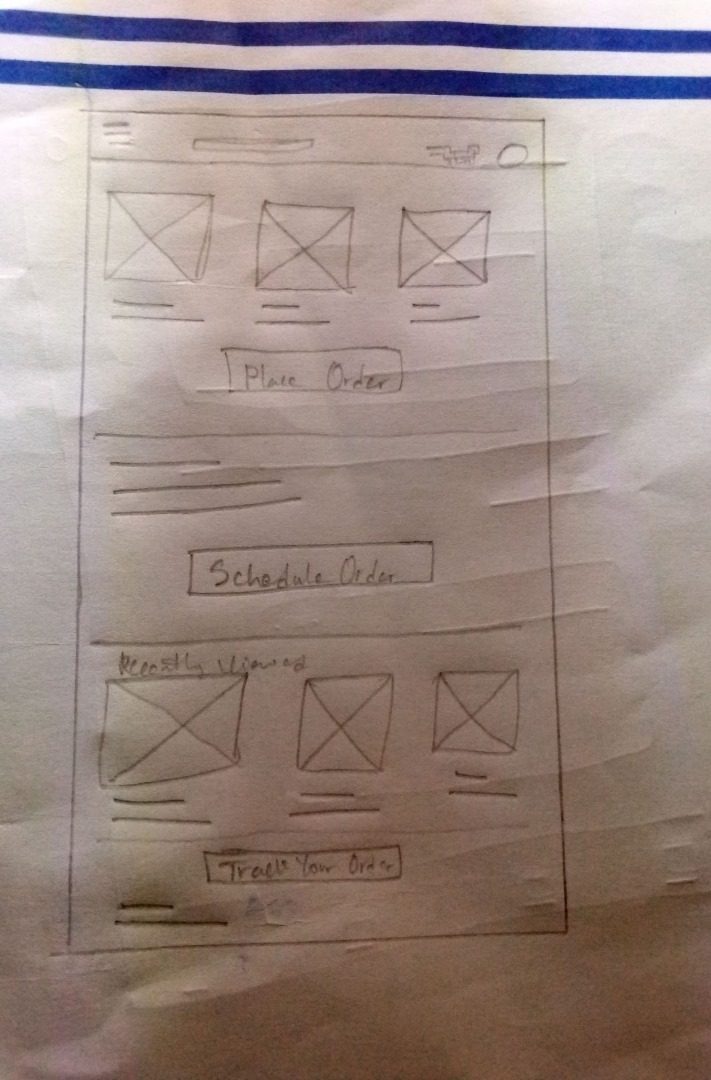 Place Order
Schedule Order
Recently Viewed
Track Your Order